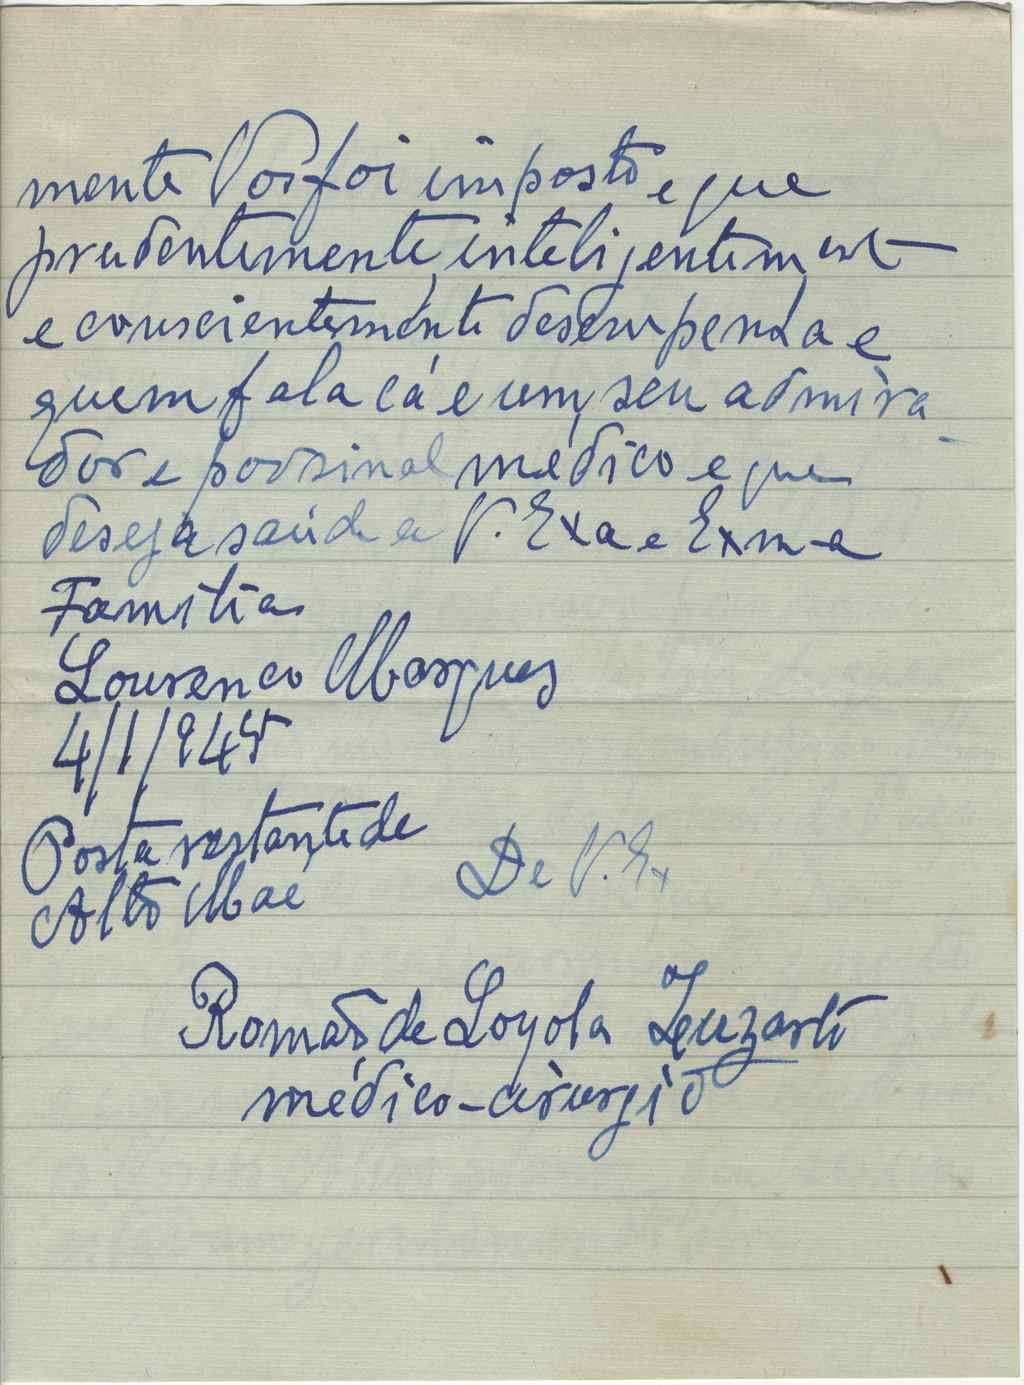 mente Vos foi imposto e que
prudentemente, inteligentemente
e conscientemente desempenha e
quem fala cá é um seu admira-
dor e por sinal médico e que
deseja saúde a V. Exa e Exma
Familia
Lourenco Marques
4/1/945
Posta restante de
Alto Mae
De V. Ex
Romão de Loyola
médico-cirurgião